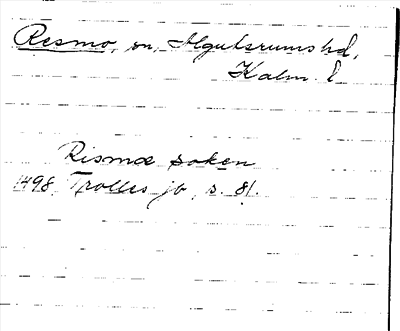 Resmo, sn, Algutsrums hd,
Kalm. l
Rismæ soken
1498 Trolles jb, s. 81.